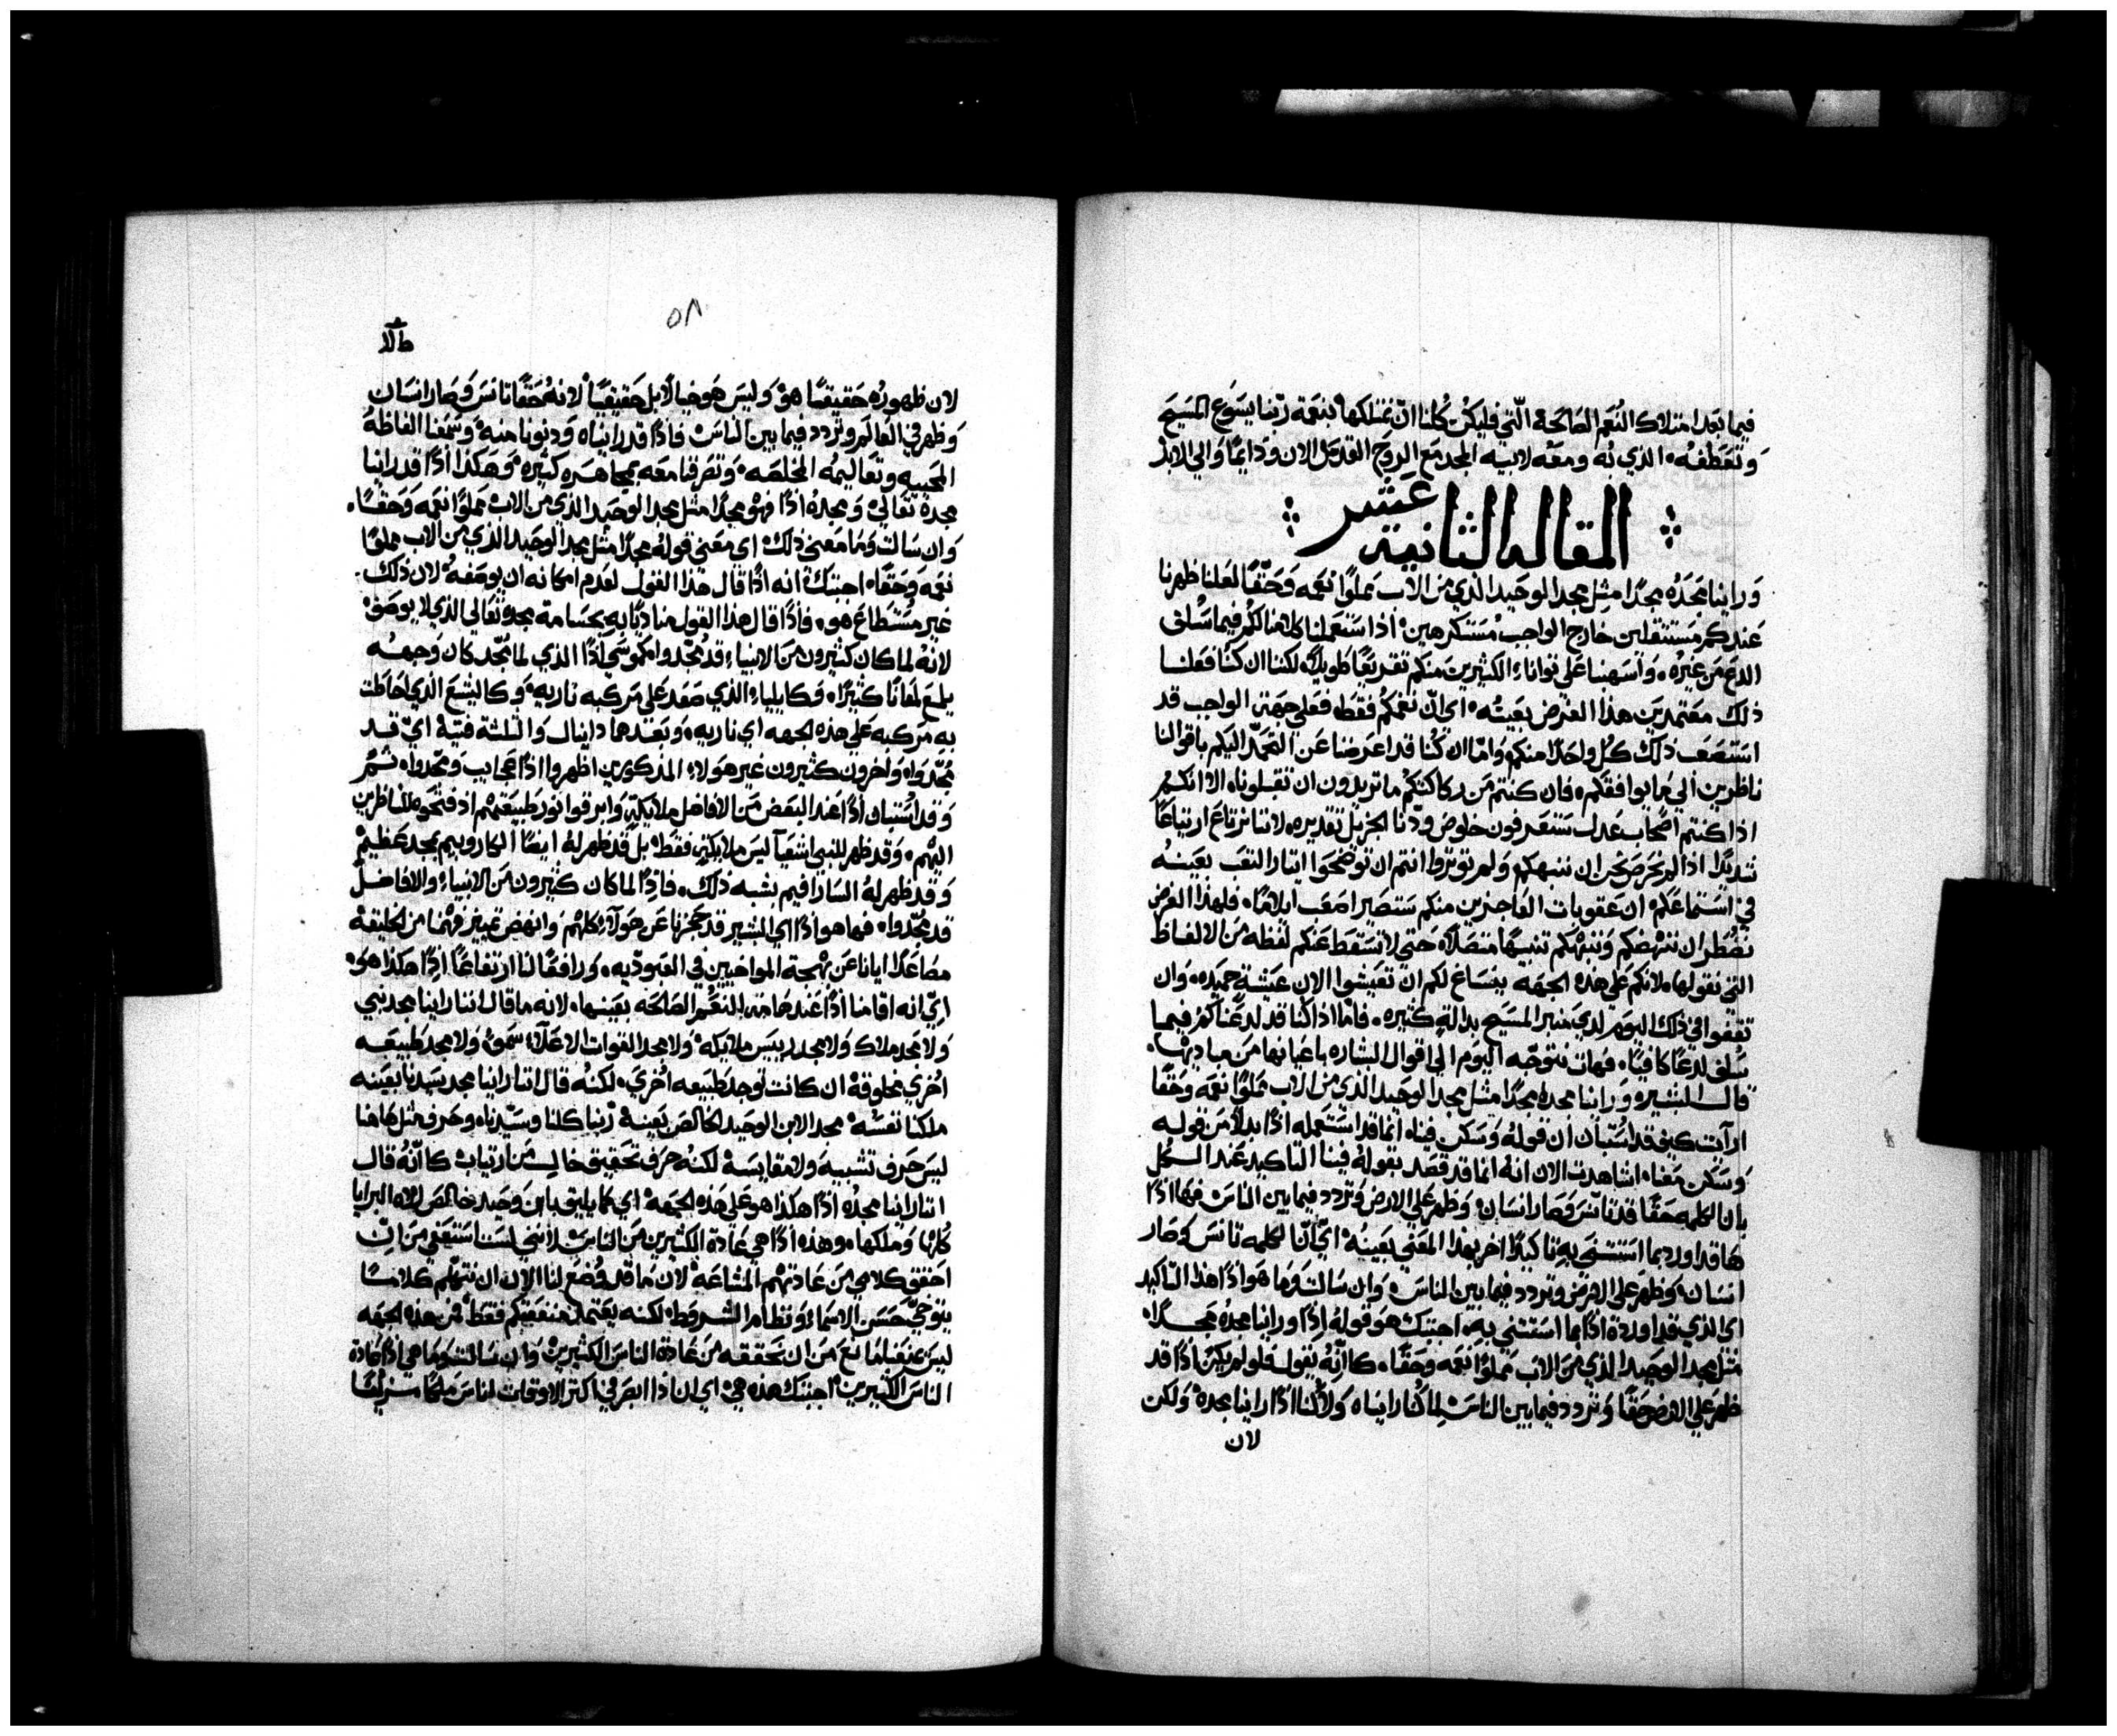 فيما بعد امتلاك النعم الصالحة الّتي فليكن كُلنا انّ نمتلكها بنعمة ربّنا يسوع المسيح
وتعطفه الذي لهُ ومعَه لابيه المجد مَع الروح القدس الان ودايمًا والي الابد
المقالة الثانية عشر
وراينا مَجدُه مجدًا مثل مجد الوحيد الذي من الاب مملوًا نعمَه وَحَقًا لعلنا ظهرنا
عندكم مستثقلين خارج الواجب مستكرهين اذا ستعملنا كلامنا لكم فيما سُلف
الدع من غيره واسهبنا علي توانا الكثيرين منكم تقريعًا طويلًا لكننا ان كنا فعلنا
ذلك معتمدين هذا الغرض بعينه اي انّ نعمكم فقط فعلي جهة الواجب قد
استصعب ذلك كل واحدًا منكم وامّا ان كُنا قد اعرضنا عَن التحمّد اليكم باقوالنا
ناظرين الي ما يوافقكم فان كنتم من ركاكتكم ما تريدون ان تقبلوناه الا انكم
اذا كنتم اصحاب عدل ستعرفون خلوص ودّنا الجزيل تقديره لاننا نرتاع ارتياعًا
شديدًا اذا لم نحرص نحن ان ننبهكم ولم توثروا انتم ان توضحوا ايثار التعب بعينه
في استماعكم ان عقوبات العاجزين منكم ستصير اصعب ايلامًا فلهذا الغرض
نضطر ان ننهضكم وننبهكم تنبيهًا متصلًا حتي لا تسقط عنكم لفظه من الالفاظ
التي نقولها لانكم علي هذه الجهه ينساغ لكم ان تعيشوا الان عيشة حميده وان
تقفوا في ذلك اليوم لدي منبر المسيح بدالة كثيره فاما اذا كنا قد لدغناكم فيما
سُلف لدغًا كافيًا فهات نتوجّه اليوم الي اقوال البشاره باعيانها من مباديها
قال البشير وراينا مجده مجدًا مثل مجد الوحيد الذي من الاب مملوًا نعمَه وحَقًا
ارآيت كيف قد استبان ان قوله وسكن فينا انما قد استعمله اذًا بدلًا من قوله
وسكن معنا اشاهدت الان انهُ انما قد قصد بقوله فينا التاكيد عند الكل
بان الكلمه حقًا قد تآنس وصار انسان وظهر علي الارض وتردد فيما بين الناس فها اذًا
ها قد اورد بما استثني به تاكيدًا اخر لهذا المعني بعينه اي انّ الكلمه تانس وصار
انسان وظهر علي الارض وتردد فيما بين الناس وان سالت وما هو اذًا هذا التاكيد
اي الذي قد اورده اذًا بما استثني به اجبتك هو قوله اذًا وراينا مجده مجدًا
مثل مجد الوحيد الذي من الاب مملوًا نعمه وحقًا كانّه يقول فلو لم يكن اذًا قد
ظهر علي الارض حَقًا وتردد فيما بين الناس لما كُنا رايناه ولا كُنا اذًا راينا مجدهُ ولكن
لان
٥٨
لان ظهوره حقيقيًا هو وليس هو خيالًا بل حقيقيًا لانهُ حقًا تانس وصار انسان
وظهر في العالم وتردد فيما بين الناس فاذًا قد رايناه ودنونا منه وسمعنا الفاظهُ
المحييه وتعاليمُه المخلصه وتصرفنا معه مجاهره كثيره وهكذا اذًا قد راينا
مجدهُ تعالي ومجدهُ اذًا فهو مجدًا مثل مجد الوحيد الذي من الاب مملوًا نعمه وحقًا
وان سالت وما معني ذلك اي معني قوله مجدًا مثل مجد الوحيد الذي من الاب مملوًا
نعمه وحقًا اجبتك انه اذًا قال هذا القول لعدم امكانه ان يوصفهُ لان ذلك
غير مستطاع هو فاذًا قال هذا القول مناديًا به بجسامة مجده تعالي الذي لا يوصف
لانهُ لما كان كثيرون من الانبياء قد مُجّدوا كموسَي اذًا الذي لما مُجّد كان وجهه
يلمع لمعانًا كثيرًا وكايلياء الذي صعد علي مركبه ناريه وكاليشع الذي احاطت
به مركبه علي هذه الجهه اي ناريه وبعدهما دانيال والثلثة فتية اي قد
مُجّدوا واخرون كثيرون غير هولاء المذكورين اظهروا اذًا عجايب ومجّدوا ثمّ
وقد استبان اذًا عند البعض من الافاضل ملايكة وابرقوا نور طبيعتهم اذ فتحوه للناظرين
اليهم وقد ظهر للنبي اشعيآ ليس ملايكة فقط بل قد ظهر له ايضًا الكاروبيم بمجد عظيم
وقد ظهر لهُ السارافيم بشبه ذلك فاذًا لما كان كثيرون من الانبياء والافاضل
قد مجّدوا فها هو اذًا اي البشير قد حجزنا عن هولآء كلهم وانهض تمييز فهمنا من الخليقه
مصاعدًا ايانا عن بهجة المواخيين في العبوديه ورافعًا لنا ارتفاعًا اذًا هكذا هو
اي انه اقامنا اذًا عند هامة النعم الصالحه بعينها لانه ما قال اننا راينا مجد نبي
ولا مجد ملاك ولا مجد رييس ملايكه ولا مجد القوات الاعلآء سموًا ولا مجد طبيعه
اخري مخلوقه ان كانت توجد طبيعه اخري لكنه قال اننا راينا مجد سيدنا بعينه
ملكنا نفسهُ مجد الابن الوحيد الخالص بعينهُ ربنا كلنا وسيّدنا وحرف مثل هاهنا
ليس حرف تشبيه ولا مقايسه لكنه حرف تحقيق خالي من ارتياب كانّه قال
اننا راينا مجدُه اذًا هكذا هو علي هذه الجهه اي كما يليق بابن وحيد خالص لاله البرايا
كلها وملكها وهذه اذًا هي عادة الكثيرين من الناس لانني لست استعفي من انّ
احقق كلامي من عادتهم المشاعه لان ما قد وُضع لنا الان ان نتهلم كلامًا
يتوخيّ حسن الاسماء ونظام الشرط لكنه يعتمد منفعتكم فقط فمن هذه الجهه
ليس يمنعنا مانع من ان نحققه من عادة الناس الكثيرين وان سالت وما هي اذًا عادة
الناس الكثيرين اجبتك هذه هي اي ان ذا ابصر في اكثر الاوقات اناس ملكًا مزينًا